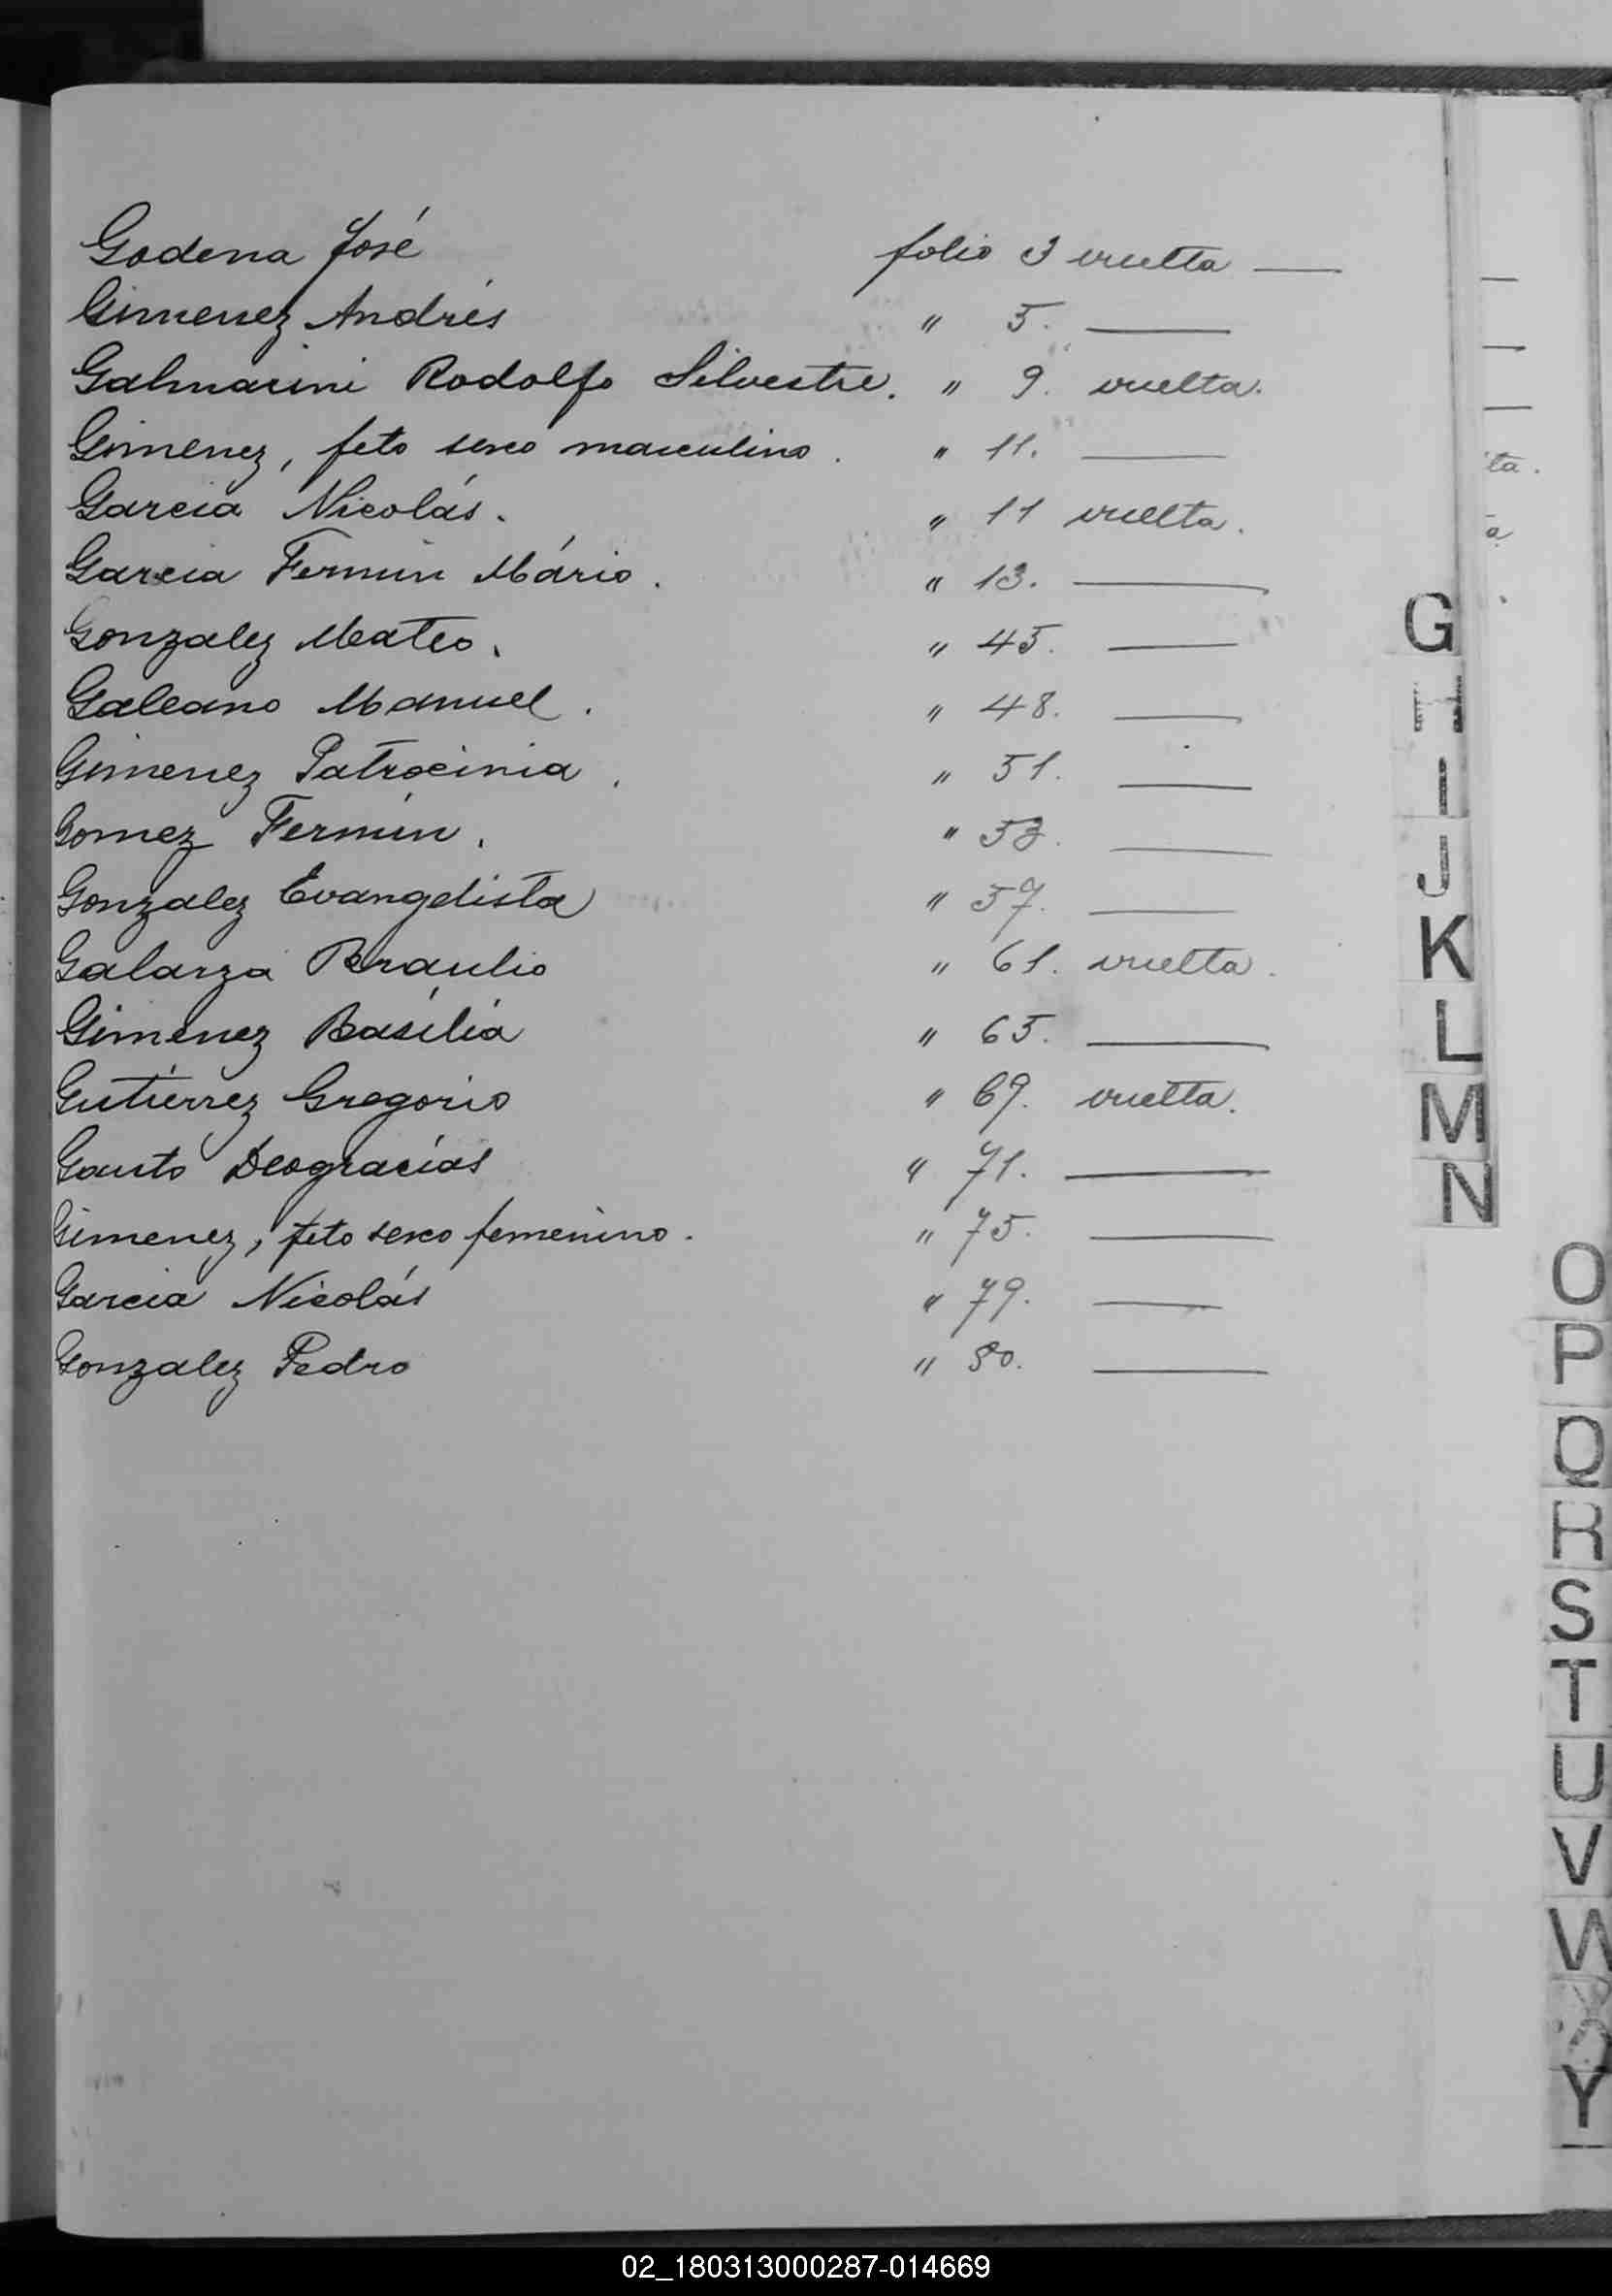 Godena José folio 3 vuelta —
Gimenez Andrés " 5. —
Galmarini Rodolfo Silvestre. " 9. vuelta.
Gimenez, feto sexo masculino. " 11. —
Garcia Nicolás. " 11 vuelta.
Garcia Fermin Mário. " 13. —
Gonzalez Mateo. " 45. —
Galeano Manuel. " 48. —
Gimenez Patrocinia. " 51. —
Gomez Fermin. " 53. —
Gonzalez Evangelista " 57. —
Galarza Braulio " 61. vuelta.
Gimenez Basilia " 65. —
Gutierrez Gregorio " 69. vuelta.
Gauto Deogracias " 71. —
Gimenez, feto sexo femenino. " 75. —
Garcia Nicolás " 79. —
Gonzalez Pedro " 80. —
ta.
a
G
H
I
J
K
L
M
N
O
P
Q
R
S
T
U
V
W
X
Y
02_180313000287-014669